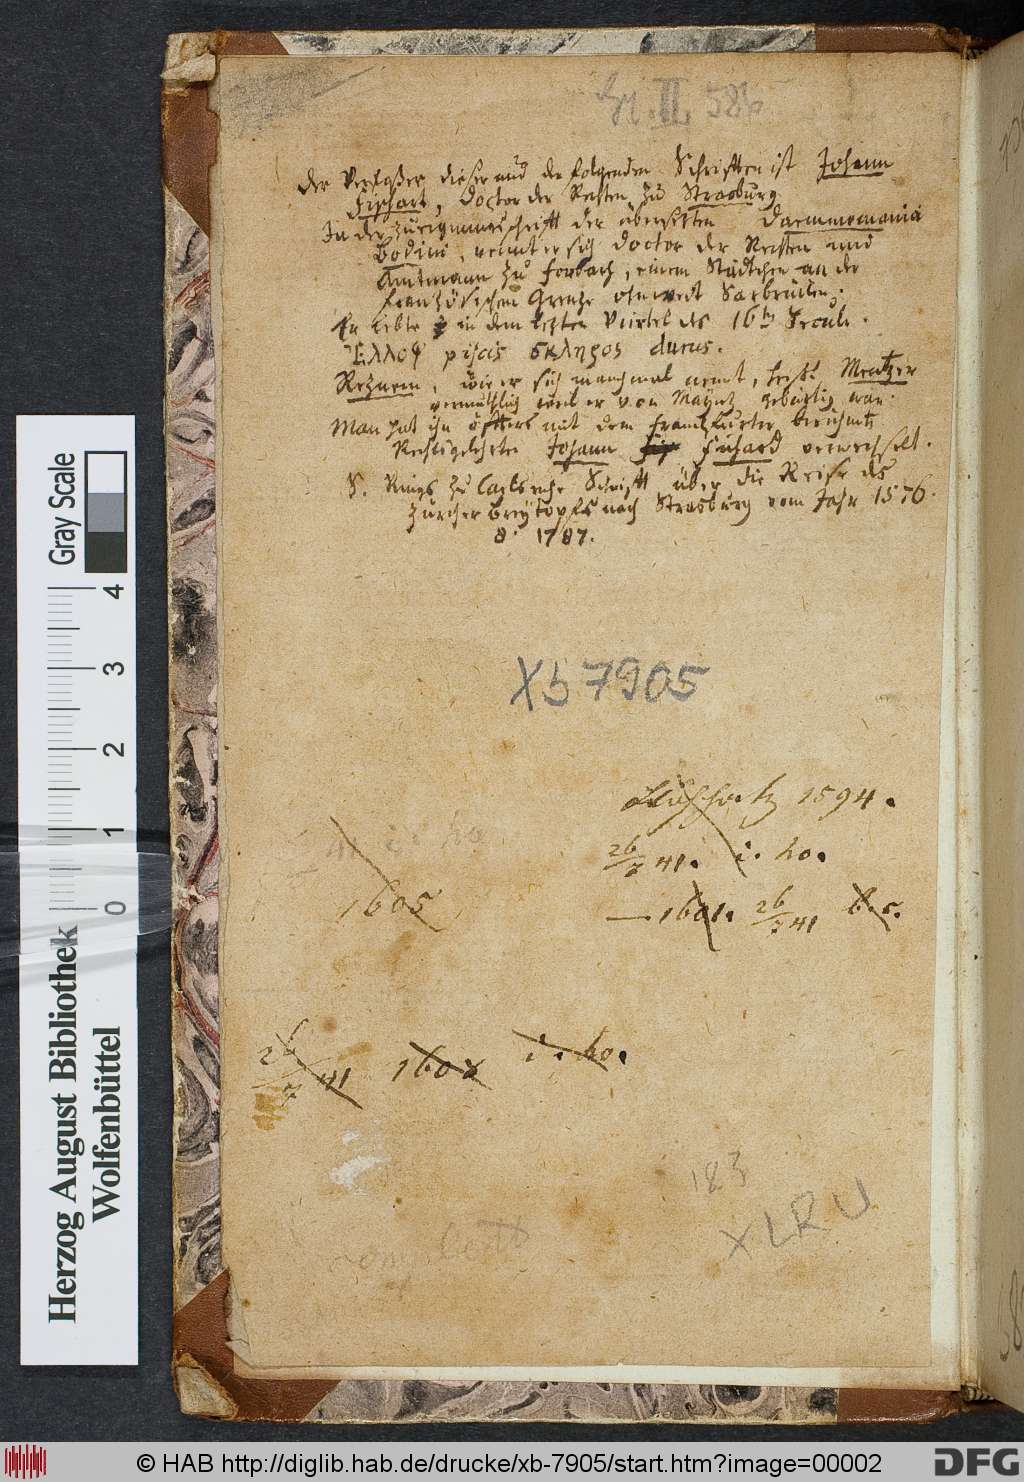 II 586
Der Verfaßer dieser und der folgenden Schrifften ist Johann
Fischart, Doctor der Rechten zu Strasburg.
In der Zueignungsschrifft der übersetzten Daemonomania
Bodini, nennt er sich Doctor der Rechten und
Amtmann zu Forbach, einem Städtchen an der
französischen Grenze ohnweit Sarbrücken.
Er lebte in dem letzten Viertel des 16ten Seculi.
Ἑλλοψ piscis σκληρος durus.
Reznem, wie er sich manchmal nennt, heist Mentzer
vermuthlich weil er von Mayntz gebürtig war.
Man hat ihn öffters mit dem Franckfurter berühmten
Rechtsgelehrten Johann Fichard verwechselt.
S. Rings zu Carlsruhe Schrifft über die Reise des
Zürcher Breytopfs nach Strasburg vom Jahr 1576.
8. 1787.
Xb 7905
1594.
26/7 41. i. ho.
1605
— 1601. 26/7 41 b. c.
26/7 41 1608 i. ho.
183
XLRU
Gray Scale
4 3 2 1 0
Herzog August Bibliothek
Wolfenbüttel
© HAB http://diglib.hab.de/drucke/xb-7905/start.htm?image=00002
DFG